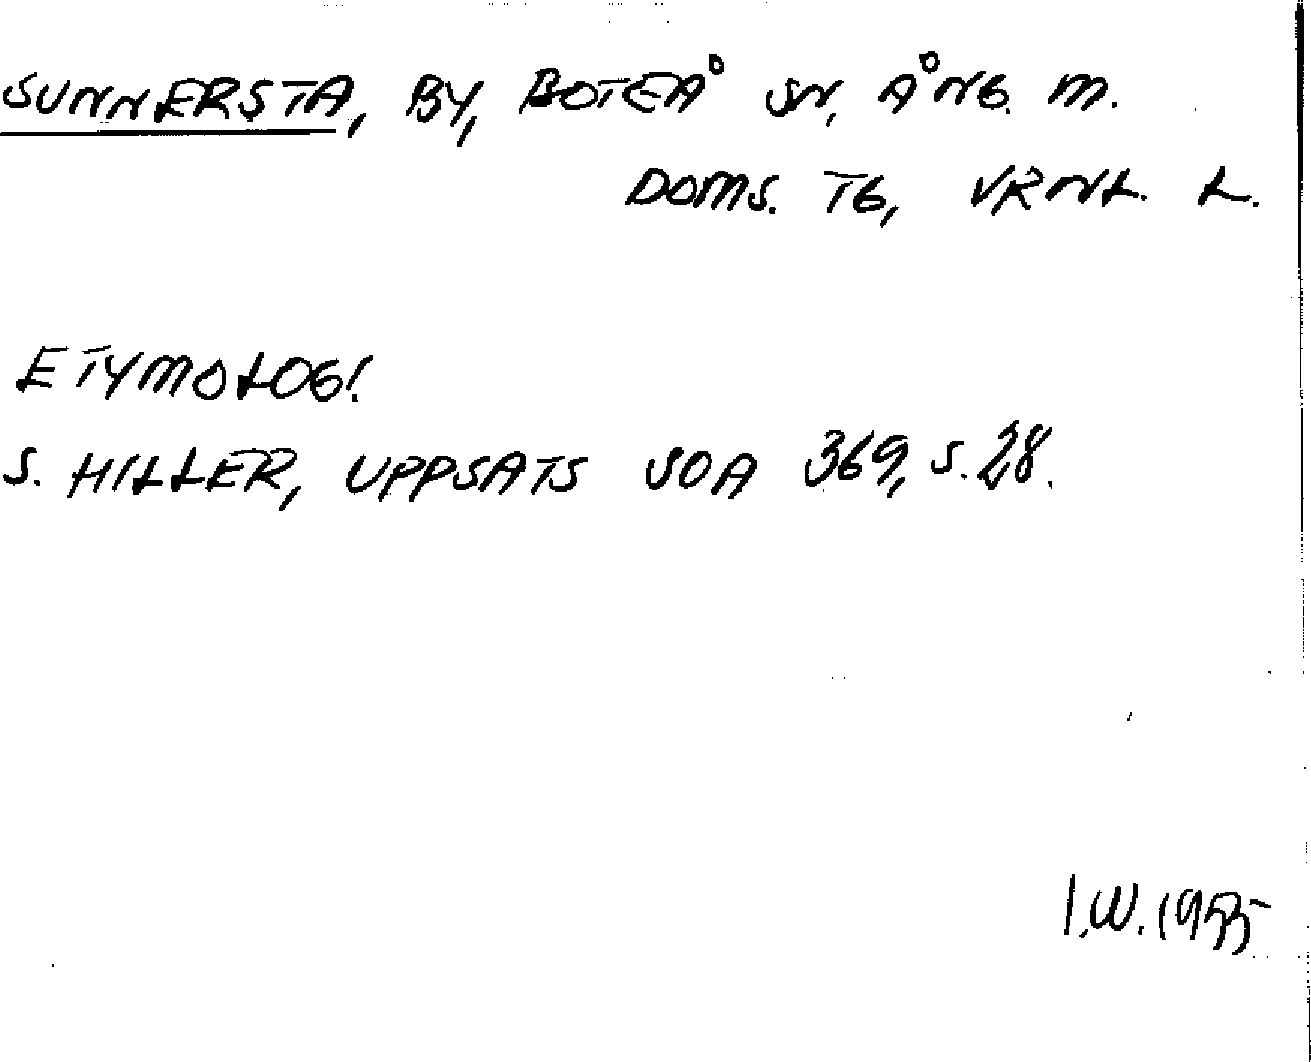 SUNNERSTA, BY, BOTEÅ SN, ÅNG. M.
DOMS. TG, VRNL. L.
ETYMOLOGI
S. HILLER, UPPSATS SOA 369, S. 28.
I.W. 1955